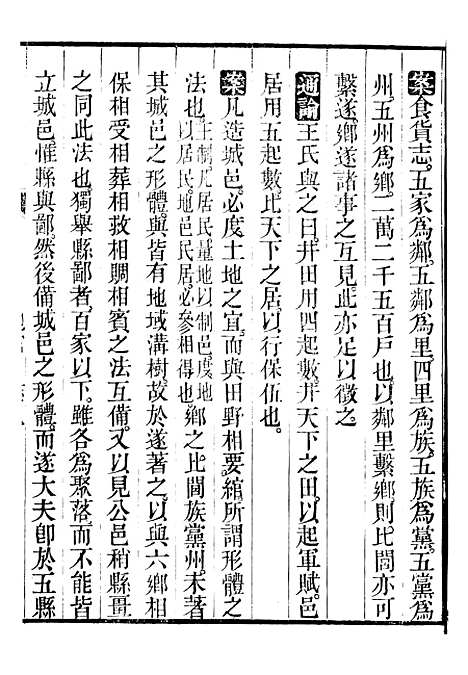 案食貨志五家爲鄰五鄰爲里四里爲族五族爲黨五黨爲
州五州爲鄉二萬二千五百戶也以鄰里繫鄉則比閭亦可
繫遂鄉遂諸事之互見此亦足以徵之
通論王氏與之曰井田用四起數井天下之田以起軍賦邑
居用五起數比天下之居以行保伍也
案凡造城邑必度土地之宜而與田野相要綰所謂形體之
法也王制凡居民量地以制邑度地
以居民地邑民居必參相得也鄉之比閭族黨州未著
其城邑之形體與皆有地域溝樹故於遂著之以與六鄉相
保相受相葬相救相賙相賓之法互備又以見公邑稍縣畺
之同此法也獨舉縣鄙者百家以下雖各爲聚落而不能皆
立城邑惟縣與鄙然後備城邑之形體而遂大夫卽於五縣